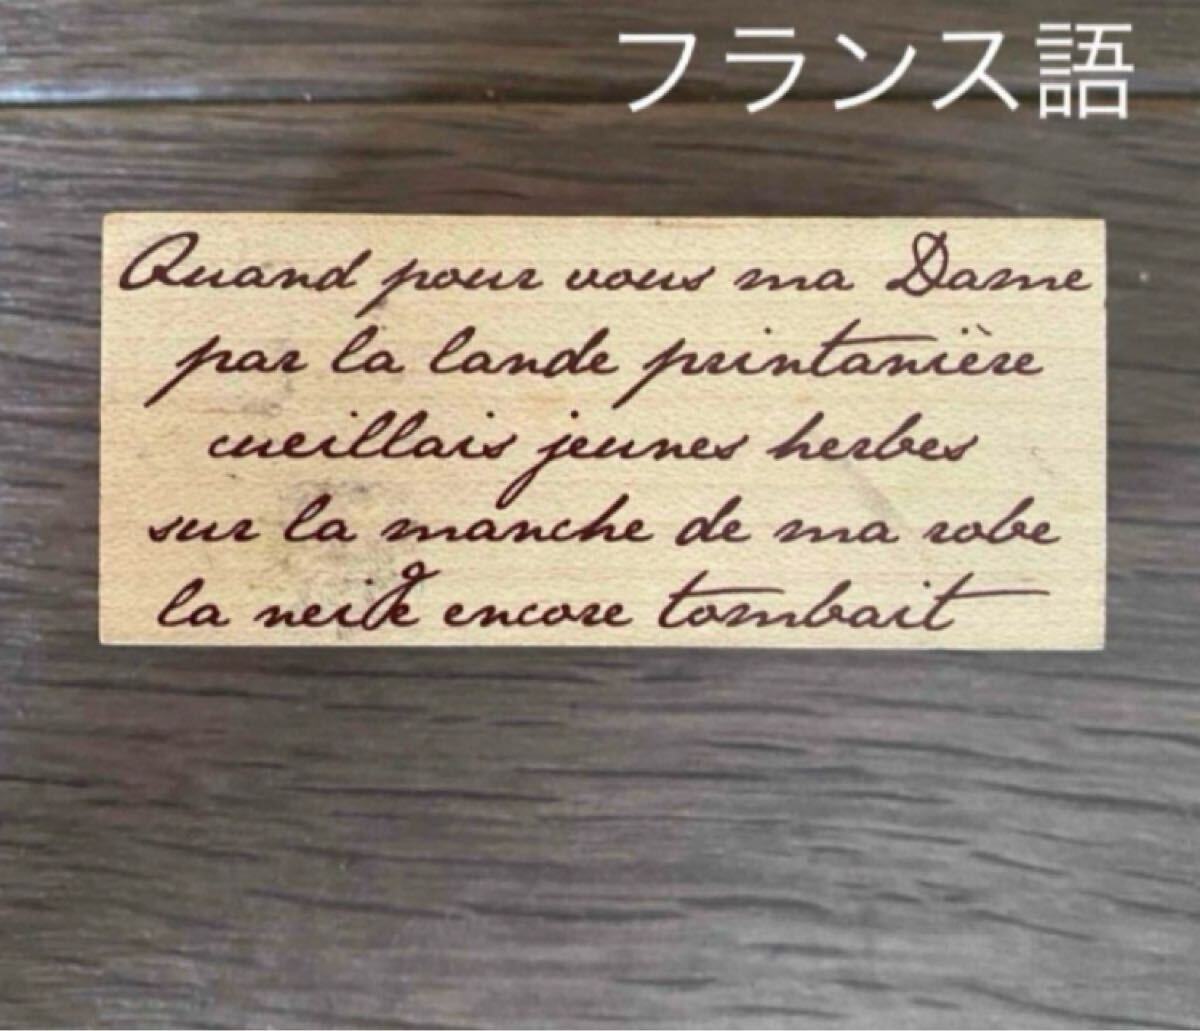 フランス語
Quand pour vous ma Dame
par la lande printanière
cueillais jeunes herbes
sur la manche de ma robe
la neige encore tombait